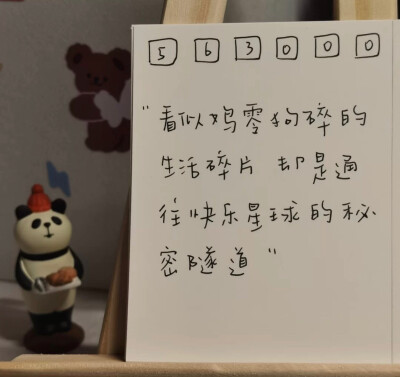 563000
"看似鸡零狗碎的
生活碎片 却是通
往快乐星球的秘
密隧道"